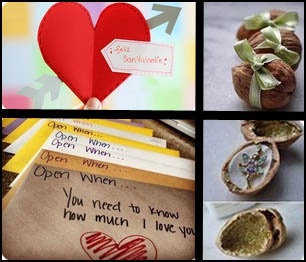 ¡Feliz
San Valentín!
Open When...
Open When...
Open When...
Open When...
Open When...
You need to know
how much I love you